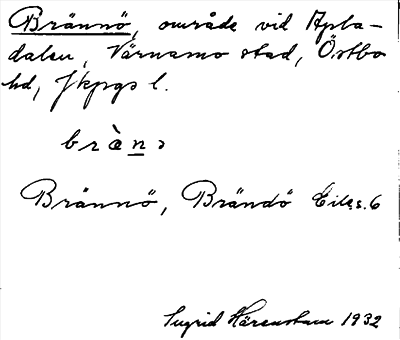 Brännö, område vid Apla-
dalen, Värnamo stad, Östbo
hd, Jkpgs l.
brànɔ
Brännö, Brändö Eil s. 6
Ingrid Härenstam 1932